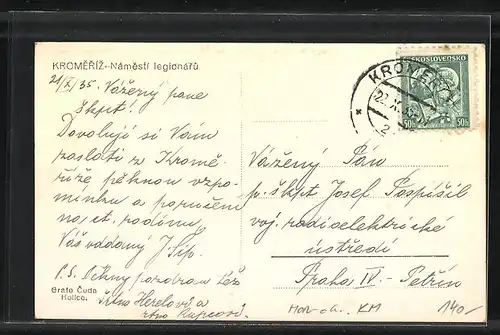 KROMĚŘÍŽ–Náměstí legionářů
21/X 35. Vážený pane
škpt!
Dovoluji si Vám
zaslati z Kromě-
říže pěknou vzpo-
mínku a poručení
na ct. rodinu
Váš oddaný J. Síp.
P.S. pozdrav
a
Grafo Čuda
Holice.
ČESKOSLOVENSKO
50h
KROMĚŘÍŽ
22. X.
Vážený Pán
p. škpt Josef Pospíšil
voj. radioelektrické
ústředí
Praha IV - Petřín
KM
140,-